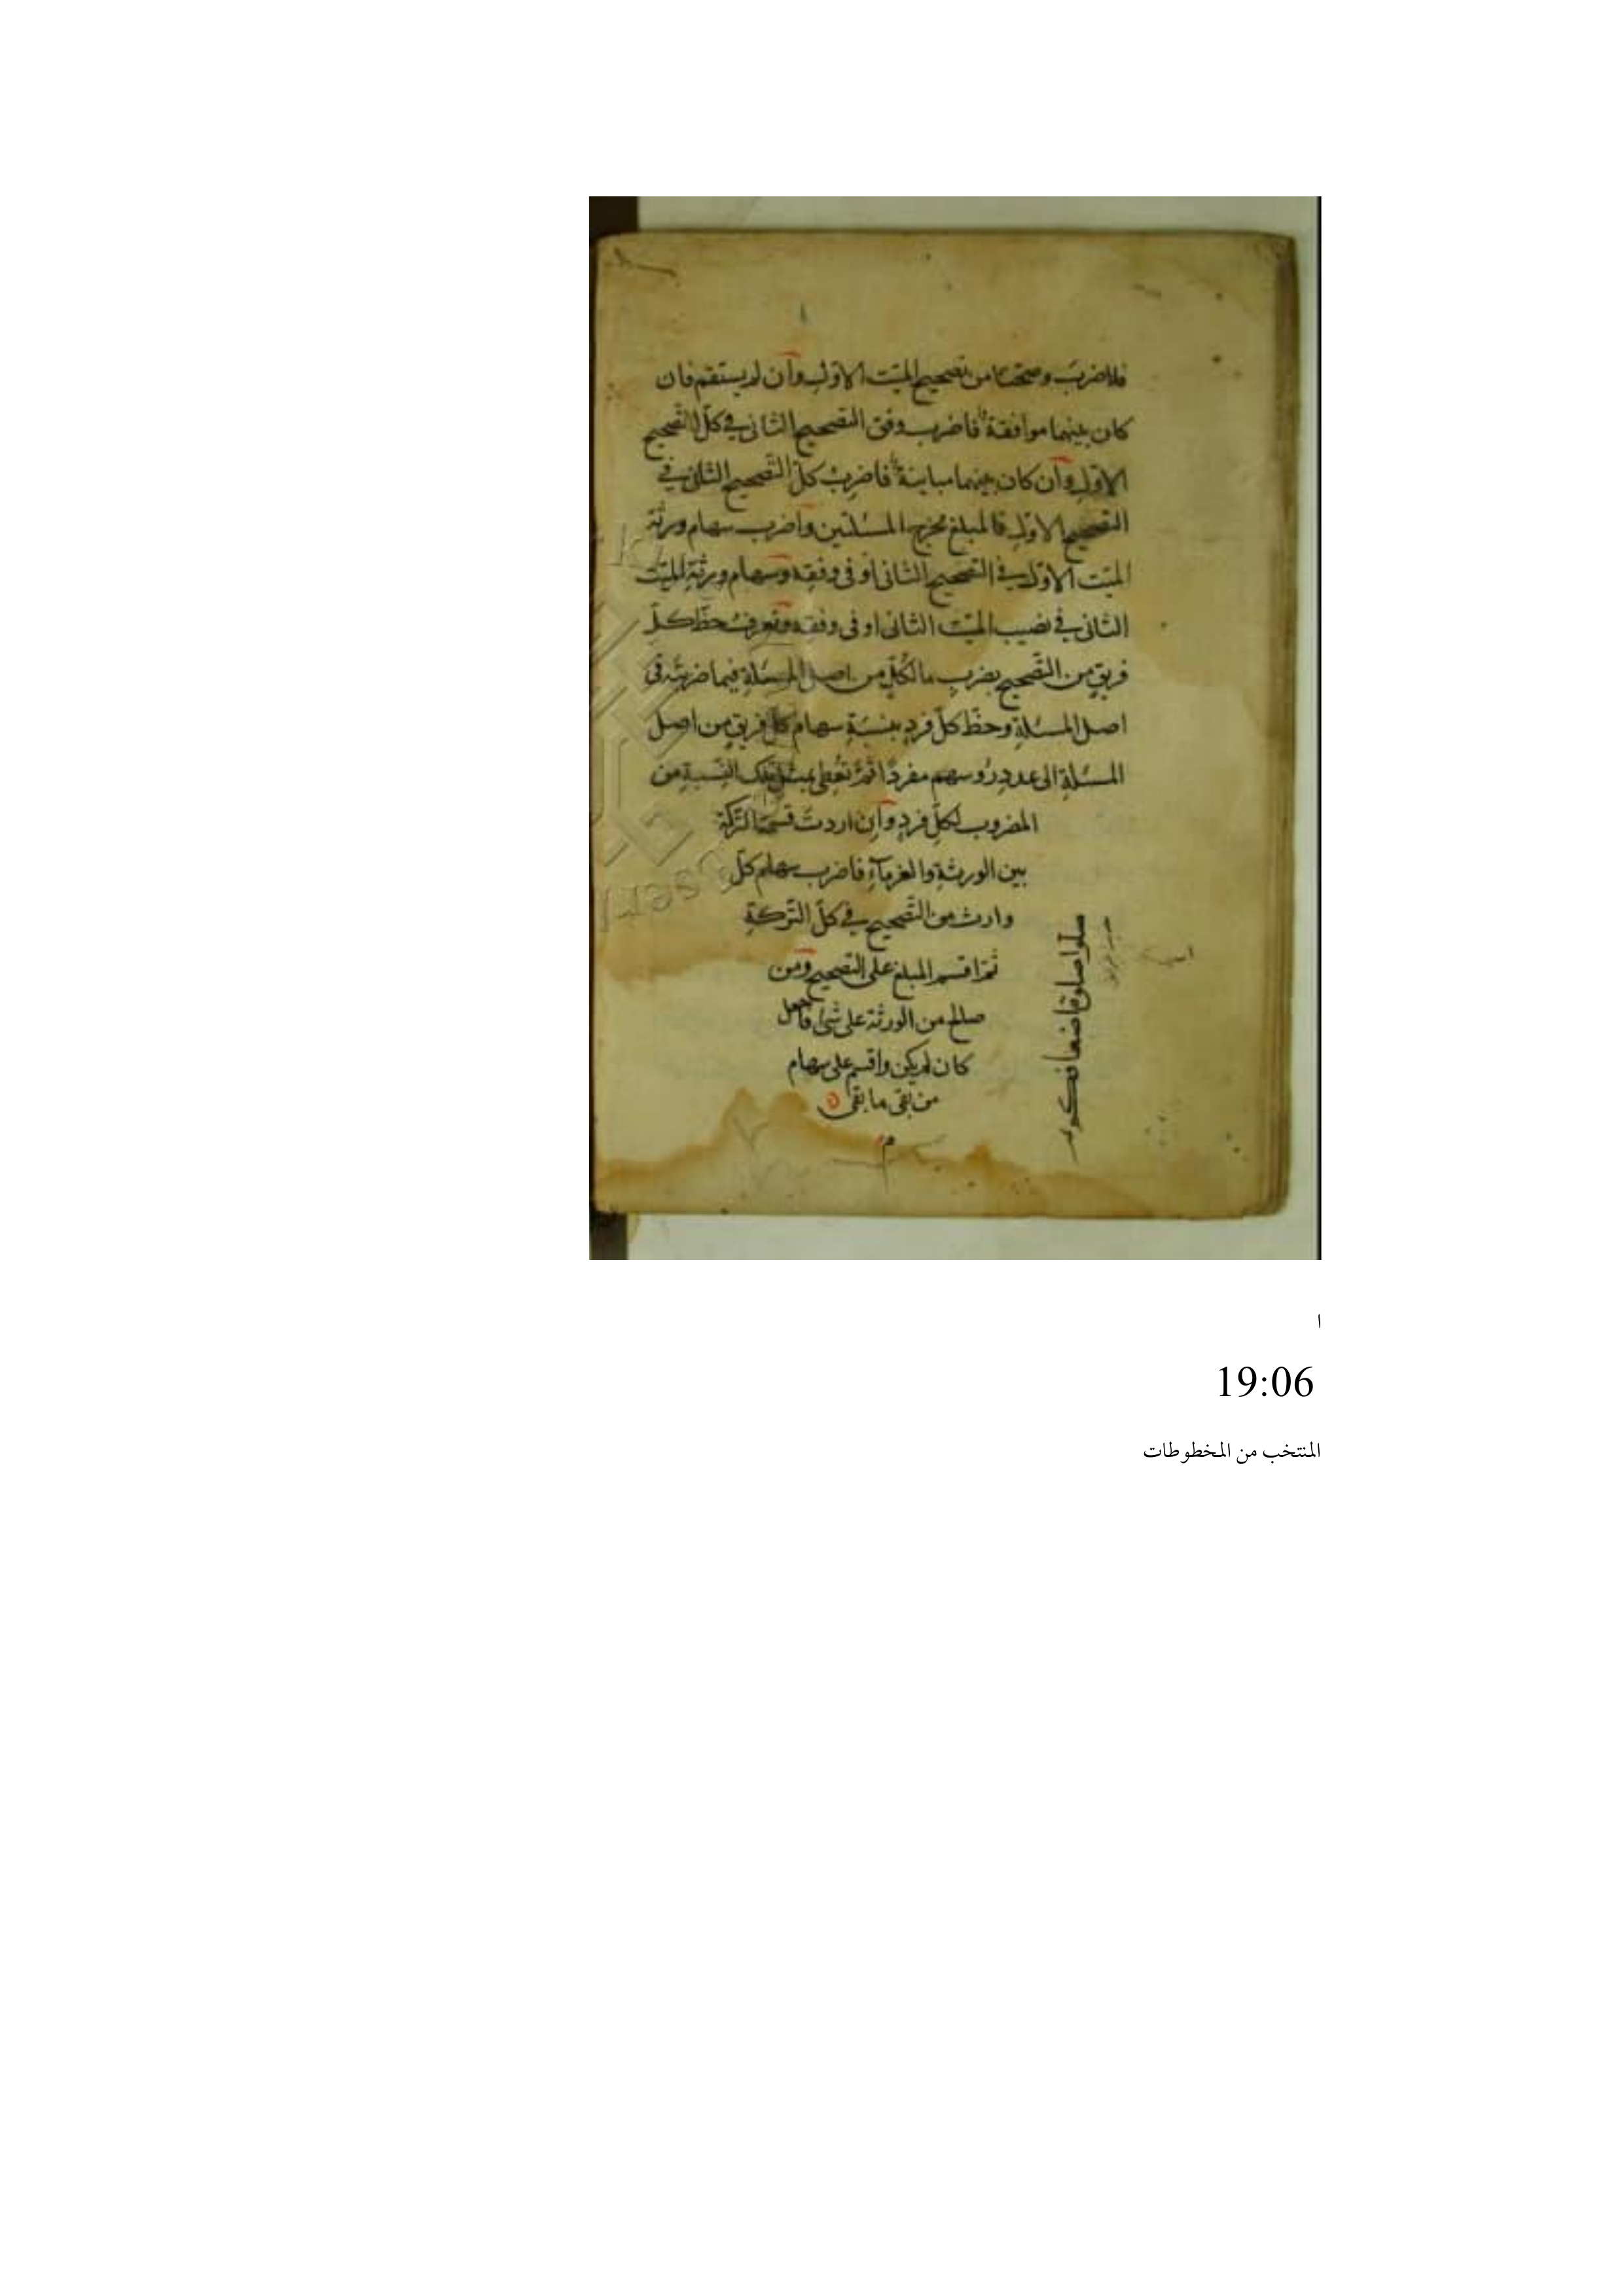 فلا ضربَ وصحتا من تصحيح الميّت الاوّل وان لم يستقم فان
كان بينهما موافقة فاضرب وفق التصحيح الثانى في كلّ التّصحيح
الاوّل وان كان بينهما مباينة فاضربْ كلّ التّصحيح الثانى في
التصحيح الاوّل فالمبلغ مخرج المسئلتين واضرب سهام ورثة
الميّت الاوّل في التصحيح الثانى او فى وفقه وسهام ورثة الميّت
الثانى في نصيب الميّت الثانى او فى وفقه وتعرف حظّ كلّ
فريقٍ من التّصحيح بضربِ ما لكُلّ من اصل المسئلةِ فيما ضربتَه فى
اصل المسئلةِ وحظّ كلّ فردٍ بنسبةِ سهام كلّ فريقٍ من اصل
المسئلةِ الى عددِ رُوسهم مفردًا ثمّ تُعطى بمثل تلك النّسبةِ من
المضروب لكلّ فردٍ وان اردتَ قسمة التّركة
بين الورثةِ والغرمآءِ فاضرب سهام كلّ
وارث من التّصحيح في كلّ التّركةِ
ثمّ اقسم المبلغ على التصحيح ومن
صالح من الورثة على شئ فاجعل
كان لم يكن واقسم على سهام
من بقى ما بقى
م
ا
19:06
المنتخب من المخطوطات